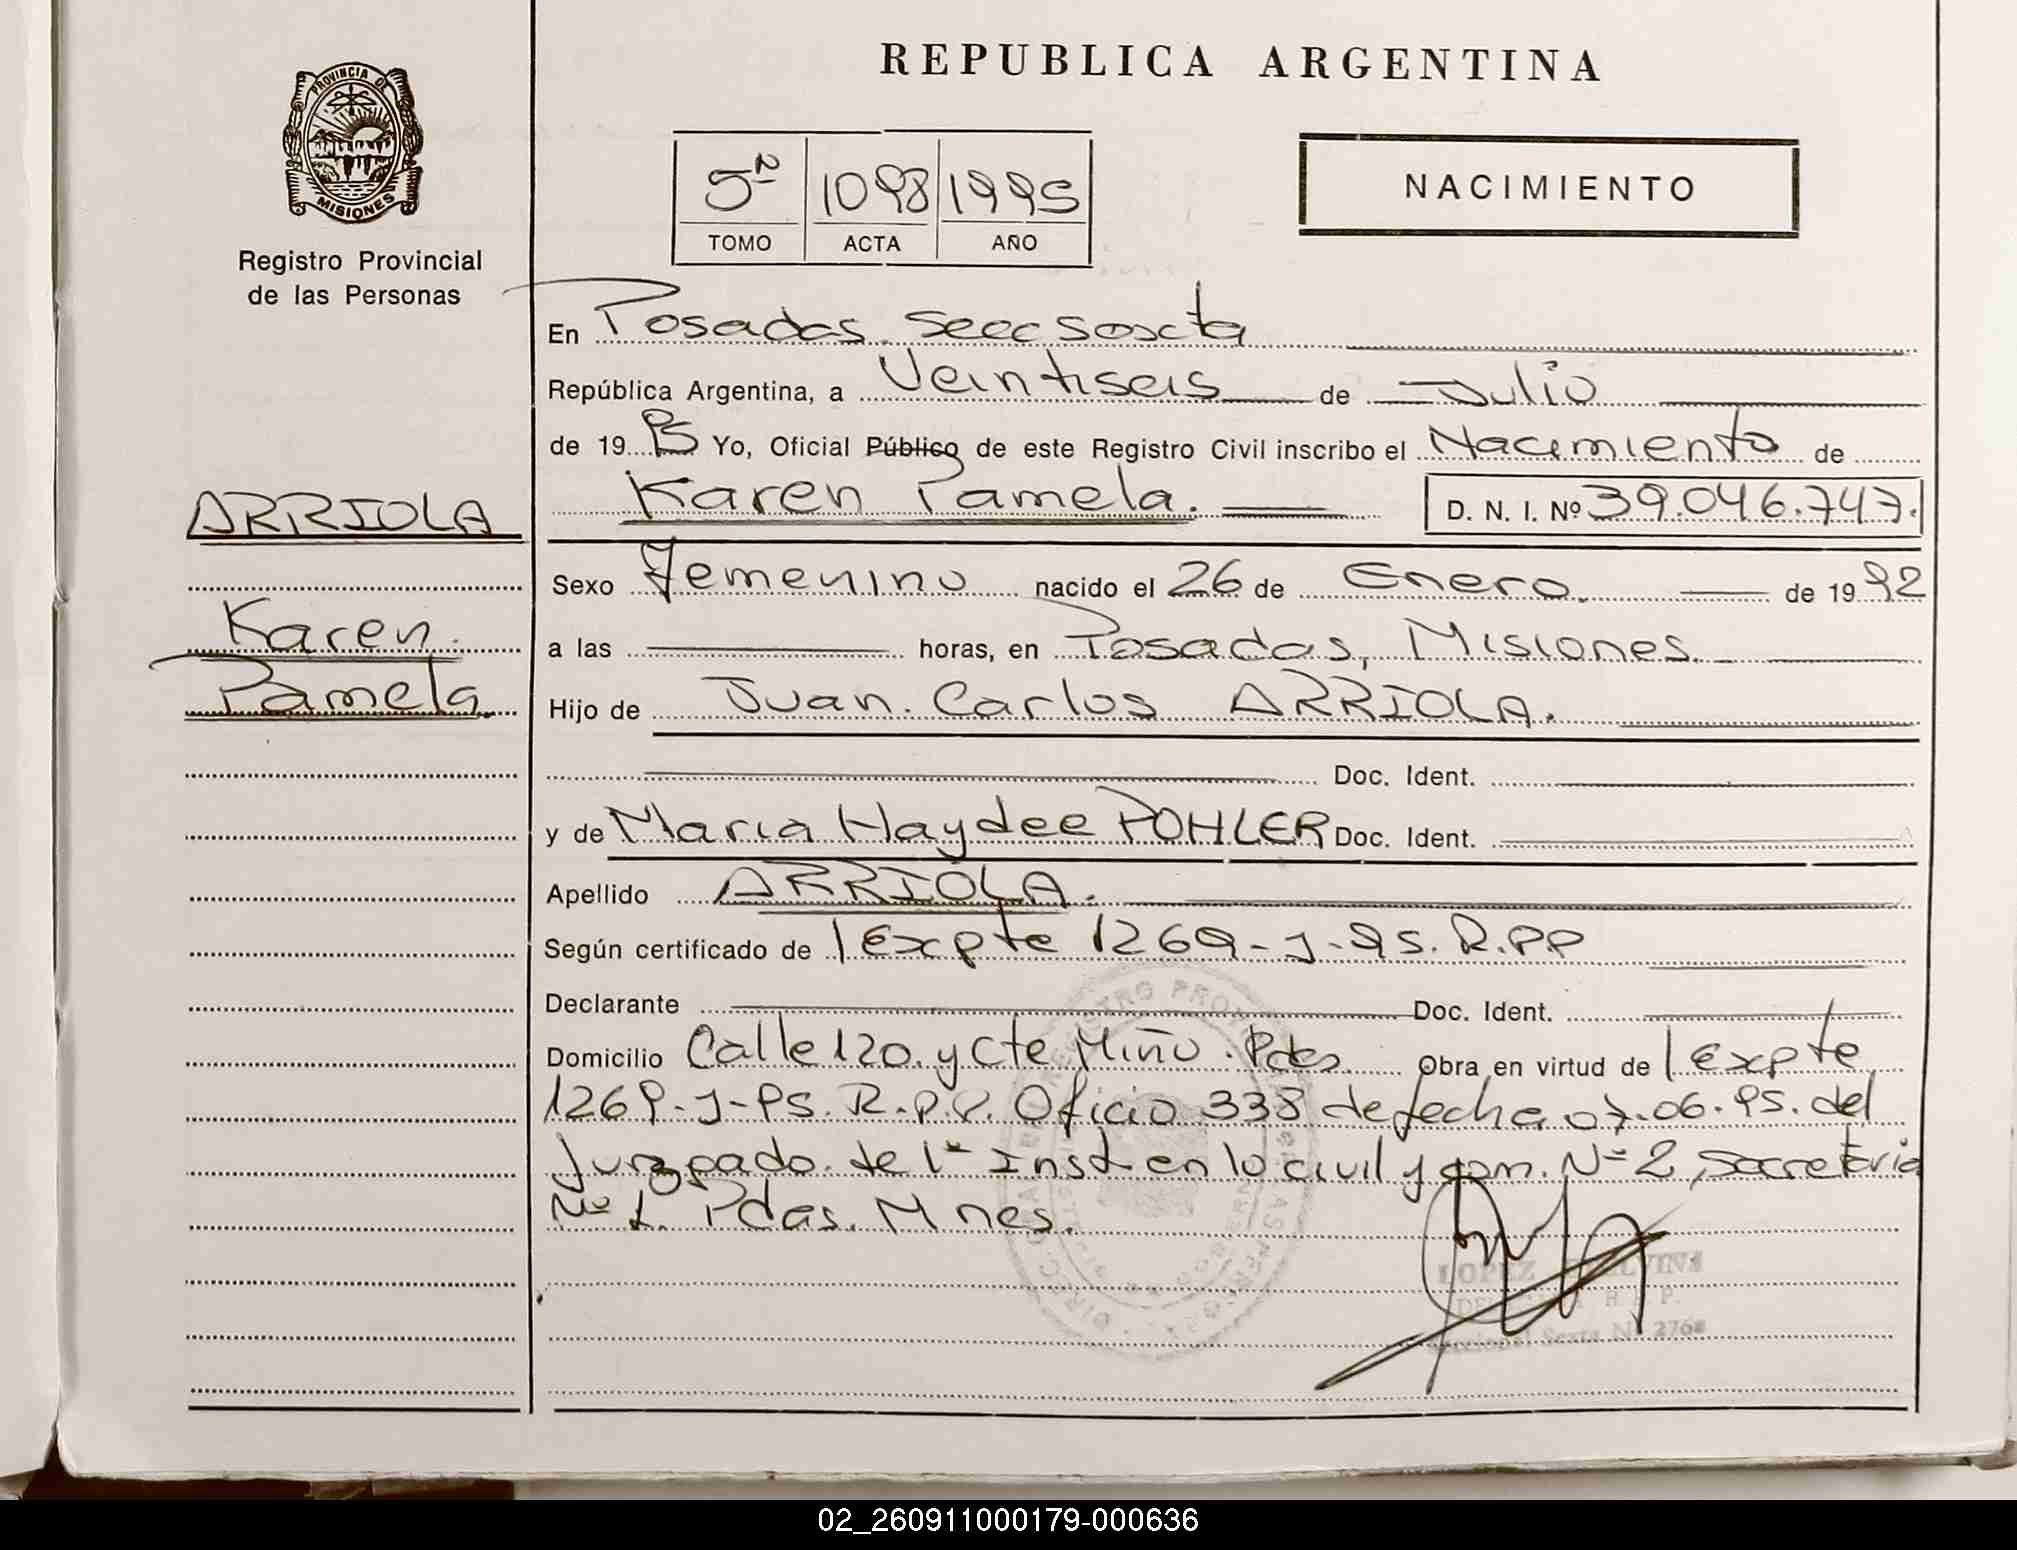 REPUBLICA ARGENTINA
PROVINCIA DE
MISIONES
Registro Provincial
de las Personas
5º 1098 1995
TOMO ACTA AÑO
NACIMIENTO
En Posadas. Secc Sexta
República Argentina, a Veintiseis de Julio
de 19 95 Yo, Oficial Público de este Registro Civil inscribo el Nacimiento de
Karen Pamela. D. N. I. Nº 39.046.747.
ARRIOLA
Sexo Femenino nacido el 26 de Enero. de 19 92
Karen.
a las horas, en Posadas, Misiones.
Pamela.
Hijo de Juan. Carlos ARRIOLA.
Doc. Ident.
y de Maria Haydee POHLER Doc. Ident.
Apellido ARRIOLA.
Según certificado de Expte 1269-J-95. R.P.P
Declarante Doc. Ident.
Domicilio Calle 120. y Cte Miño. Pdas. Obra en virtud de Expte
1269-J-95. R.P.P. Oficio 338 de fecha 07.06.95. del
Juzgado. de 1ª Inst en lo civil y com. Nº 2, Secretaria
Nº 1. Pdas. Mnes.
LOPEZ
R. P.
Seccional Sexta Nº 2768
02_260911000179-000636